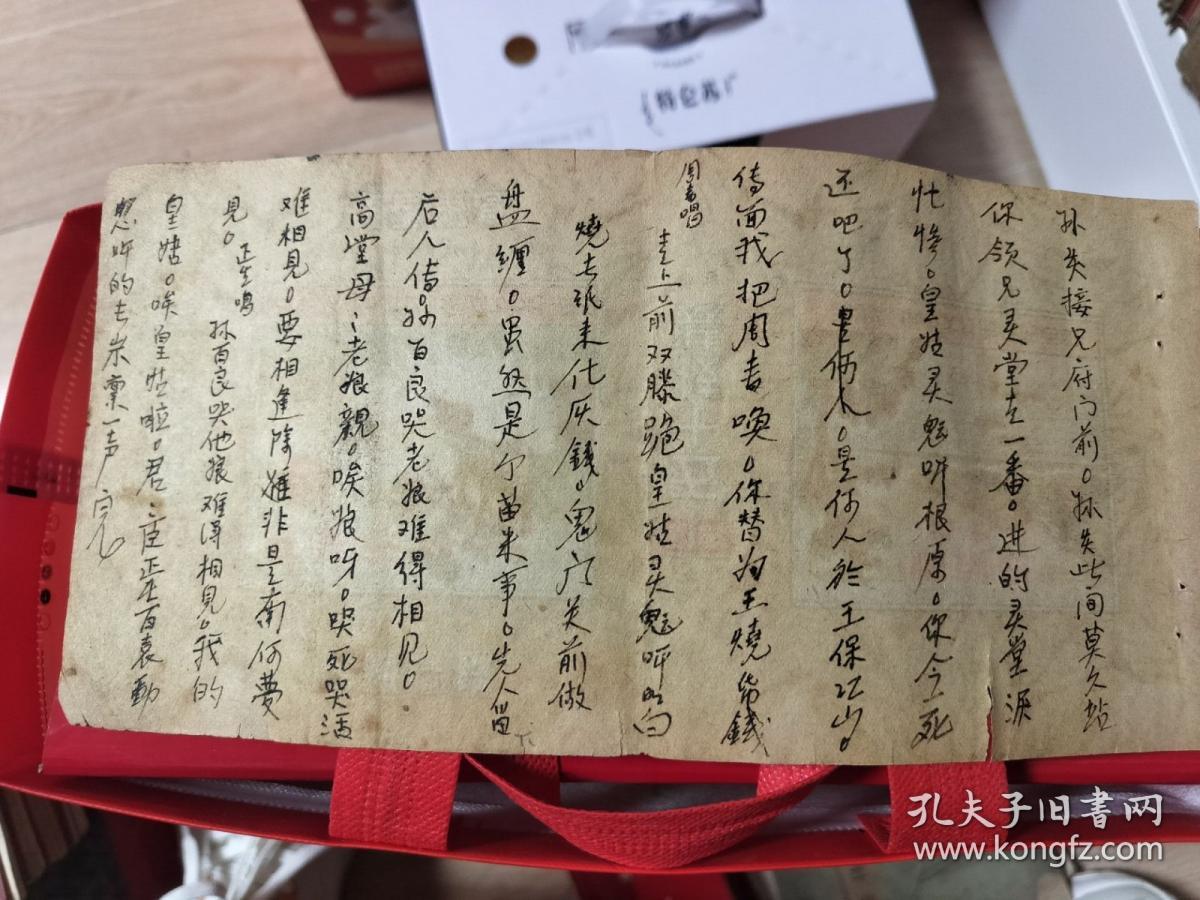 孙失接兄府门前。孙失此间莫久站
你领兄灵堂走一番。进的灵堂泪
忙惨。皇姑灵魂听根原。你今一死
还吧了。是何人於王保江山。
传面我把周青唤。你替为王燒帋錢
周青唱
走上前双膝跪皇姑灵魂听明白
燒去纸来化灰錢。鬼门关前做
盘缠。虽然是个苗来事。先人留
后人传。孙百良哭老娘难得相見。
高堂母：老娘親。唉娘呀。哭死哭活
难相見。要相逢除非是南何夢
見。
正生唱
孙百良哭他娘难得相見。我的
皇姑。唉皇姑啦。君：臣正百哀動
听的去来禀一声 完
特仑苏
孔夫子旧书网
www.kongfz.com